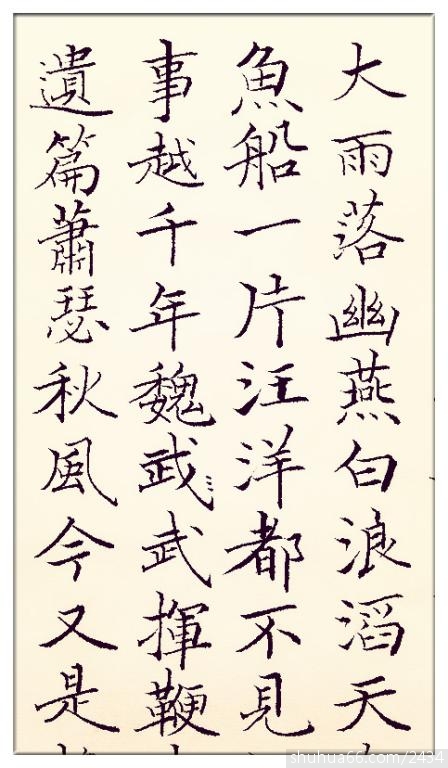 大雨落幽燕白浪滔天
魚船一片汪洋都不見
事越千年魏武武揮鞭
遺篇蕭瑟秋風今又是
shuhua66.com/2434